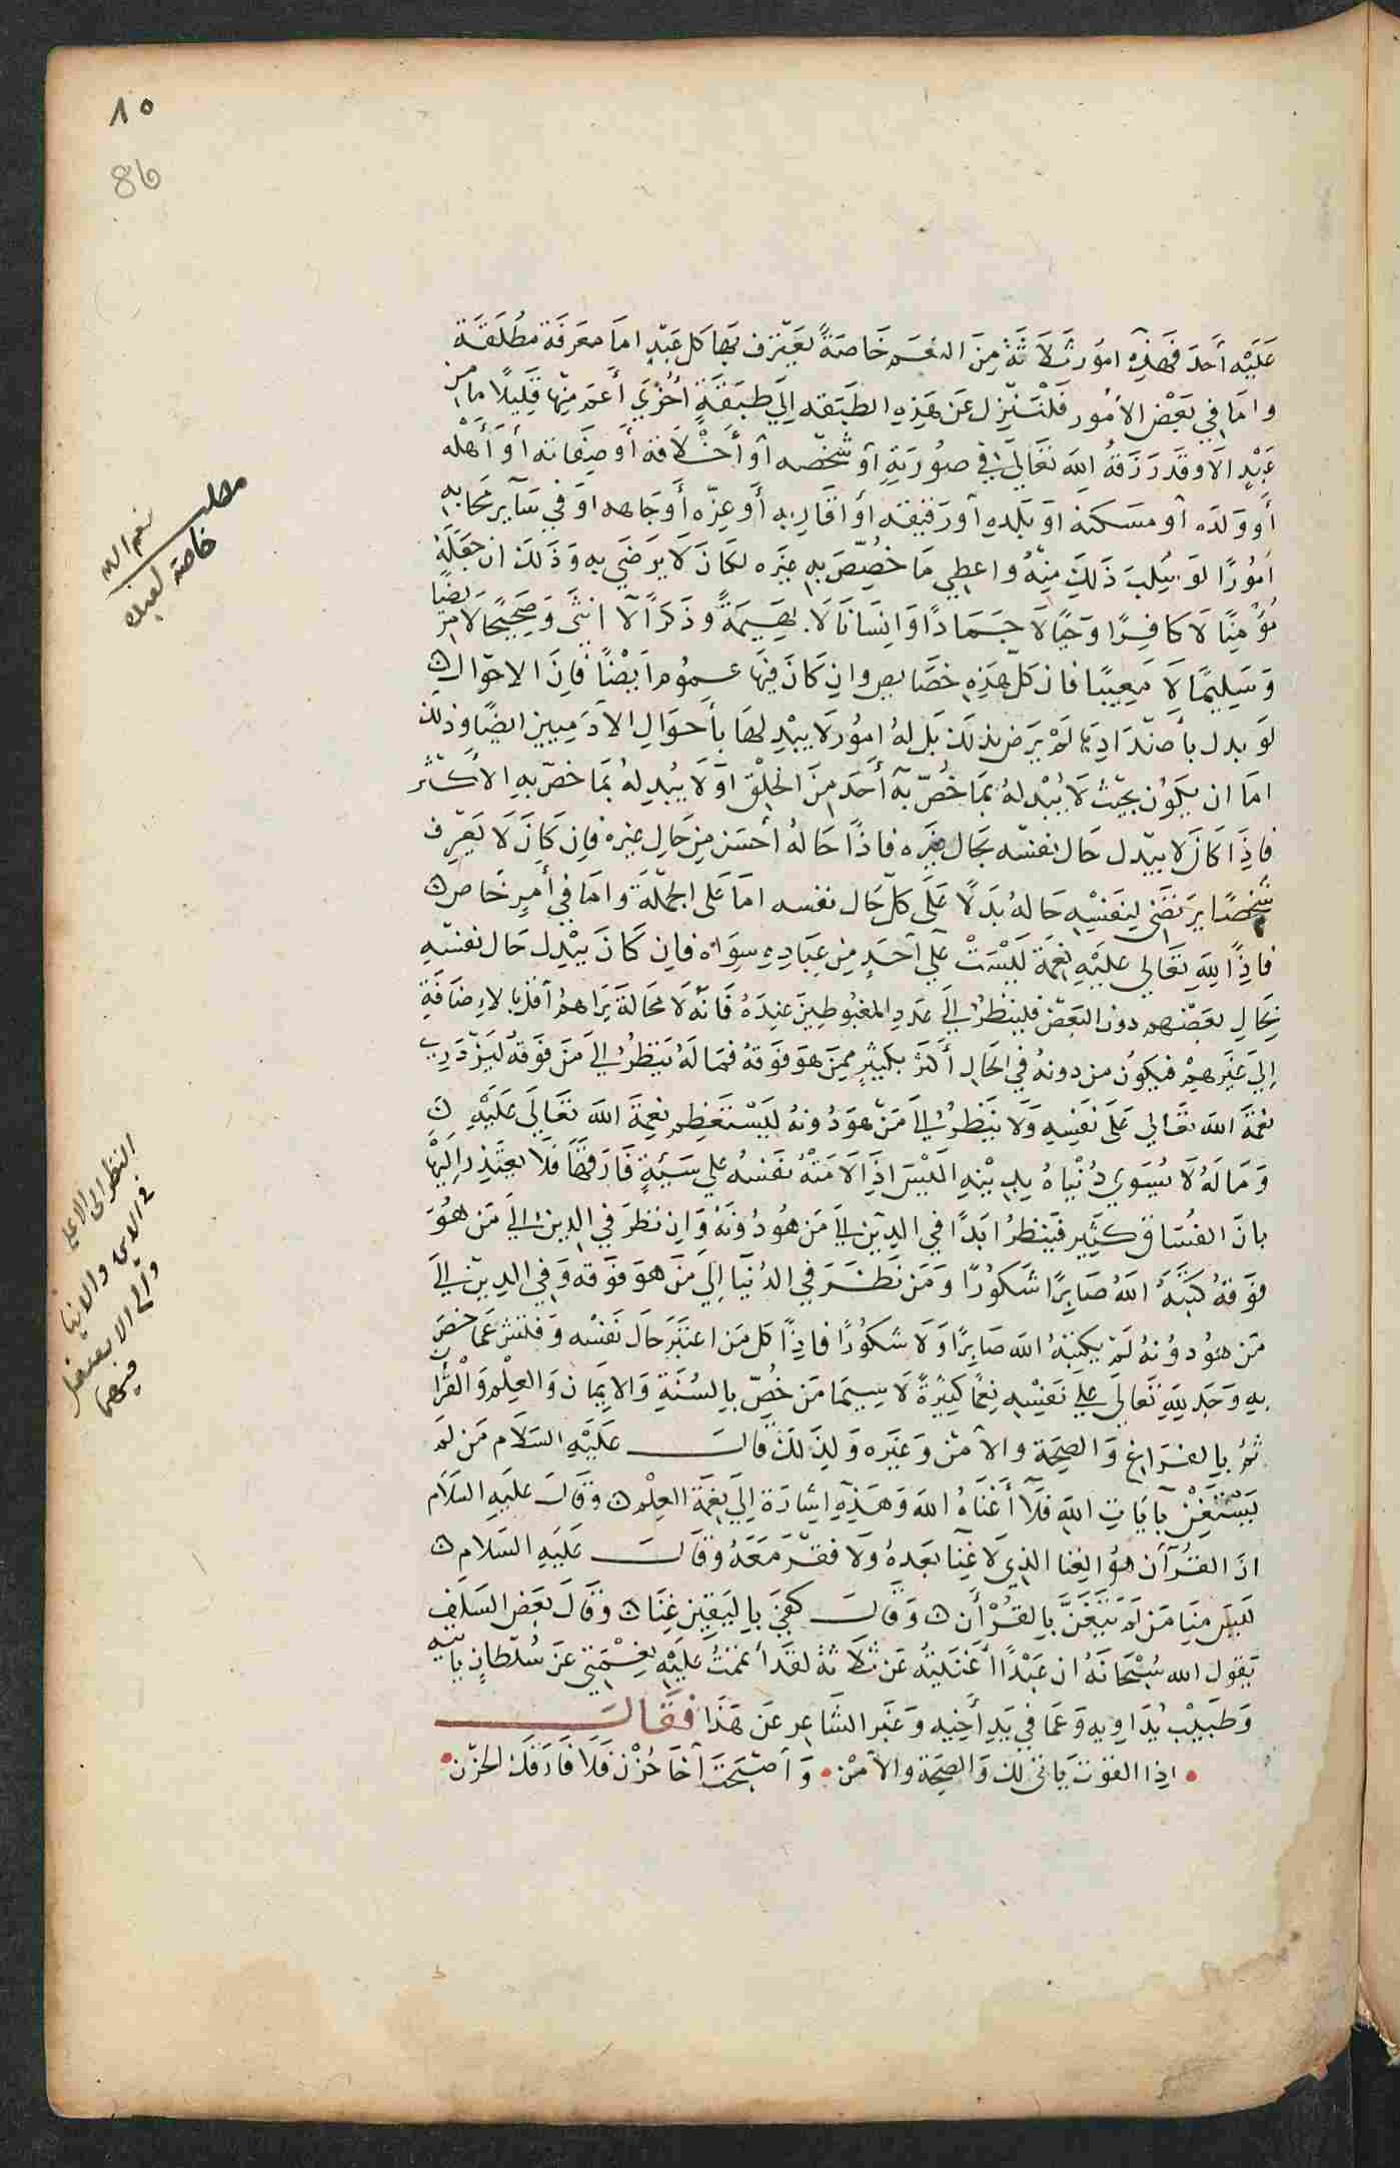 ١٥
86
عليه أحد فهذه امور ثلاثة من النعم خاصة يعترف بها كل عبد اما معرفة مطلقة
واما في بعض الأمور فلتنزل عن هذه الطبقه إلى طبقة أخرى أعم منها قليلا ما من
عبد الا وقد رزقه الله تعالى في صورته أو شخصه أو أخلاقه أو صفاته أو أهله
أو ولده أو مسكنه او بلده أو رفيقه أو أقاربه أو عزه أو جاهه او في سآير محابه
امورا لو سلب ذلك منه واعطي ما خصص به غيره لكان لا يرضي به وذلك ان جعله
مؤمنا لا كافرا وحيا لا جمادا وانسانا لا بهيمة وذكرا لا انثى وصحيحا لا مريضا
وسليما لا معيبا فان كل هذه خصايص وان كان فيها عموم أيضا فان الاحوال
لو بدل بأضدادها لم يرض بذلك بل له امور لا يبدلها بأحوال الآدميين ايضا وذلك
اما ان يكون بحيث لا يبدله بما خص به أحد من الخلق او لا يبدله بما خص به الأكثر
فاذا كان لا يبدل حال نفسه بحال غيره فاذا حاله أحسن من حال غيره فان كان لا يعرف
شخصا يرتضى لنفسه حاله بدلا على كل حال نفسه اما على الجملة واما في أمر خاص
فاذا لله تعالى عليه نعمة ليست على أحد من عباده سواه فان كان يبدل حال نفسه
بحال بعضهم دون البعض فلينظر الى عدد المغبوطين عنده فانه لا محالة يراهم أقل بالاضافة
إلى غيرهم فيكون من دونه في الحال أكثر بكثير ممن هو فوقه فما له ينظر الى من فوقه ليزدري
نعمة الله تعالى على نفسه ولا ينظر الى من هو دونه ليستعظم نعمة الله تعالى عليه
وما له لا يسوي دنياه بدينه أليس اذا لامته نفسه على سيئة قارفها فلا يعتذر إليها
بان الفساق كثير فينظر ابدا في الدين الى من هو دونه وان نظر في الدين الى من هو
فوقه كتبه الله صابرا شكورا ومن نظر في الدنيا إلى من هو فوقه وفي الدين الى
من هو دونه لم يكتبه الله صابرا ولا شكورا فاذا كل من اعتبر حال نفسه وفتش عما خص
به وجد لله تعالى على نفسه نعما كثيرة لا سيما من خص بالسنة والايمان والعلم والقرا
ثم بالفراغ والصحة والأمن وغيره ولذلك قال عليه السلام من لم
يستغن بآيات الله فلا أغناه الله وهذه اشارة إلى نعمة العلم وقال عليه السلام
ان القرآن هو الغنا الذي لا غنآ بعده ولا فقر معه وقال عليه السلام
ليس منا من لم يتغن بالقرأن وقال كفى باليقين غنا وقال بعض السلف
يقول الله سبحانه ان عبدا أغنيته عن ثلاثة لقد أتممت عليه نعمتي عن سلطان يأتيه
وطبيب يداويه وعما في يد أخيه وعبر الشاعر عن هذا فقال
اذا القوت ياتى لك والصحة والأمن وأصبحت أخا حزن فلا فارقك الحزن
مطلب
نعم الله
خاصة لعبده
النظر الى الاعلى
في الدين والدنيا
والى الاسفل
فيهما